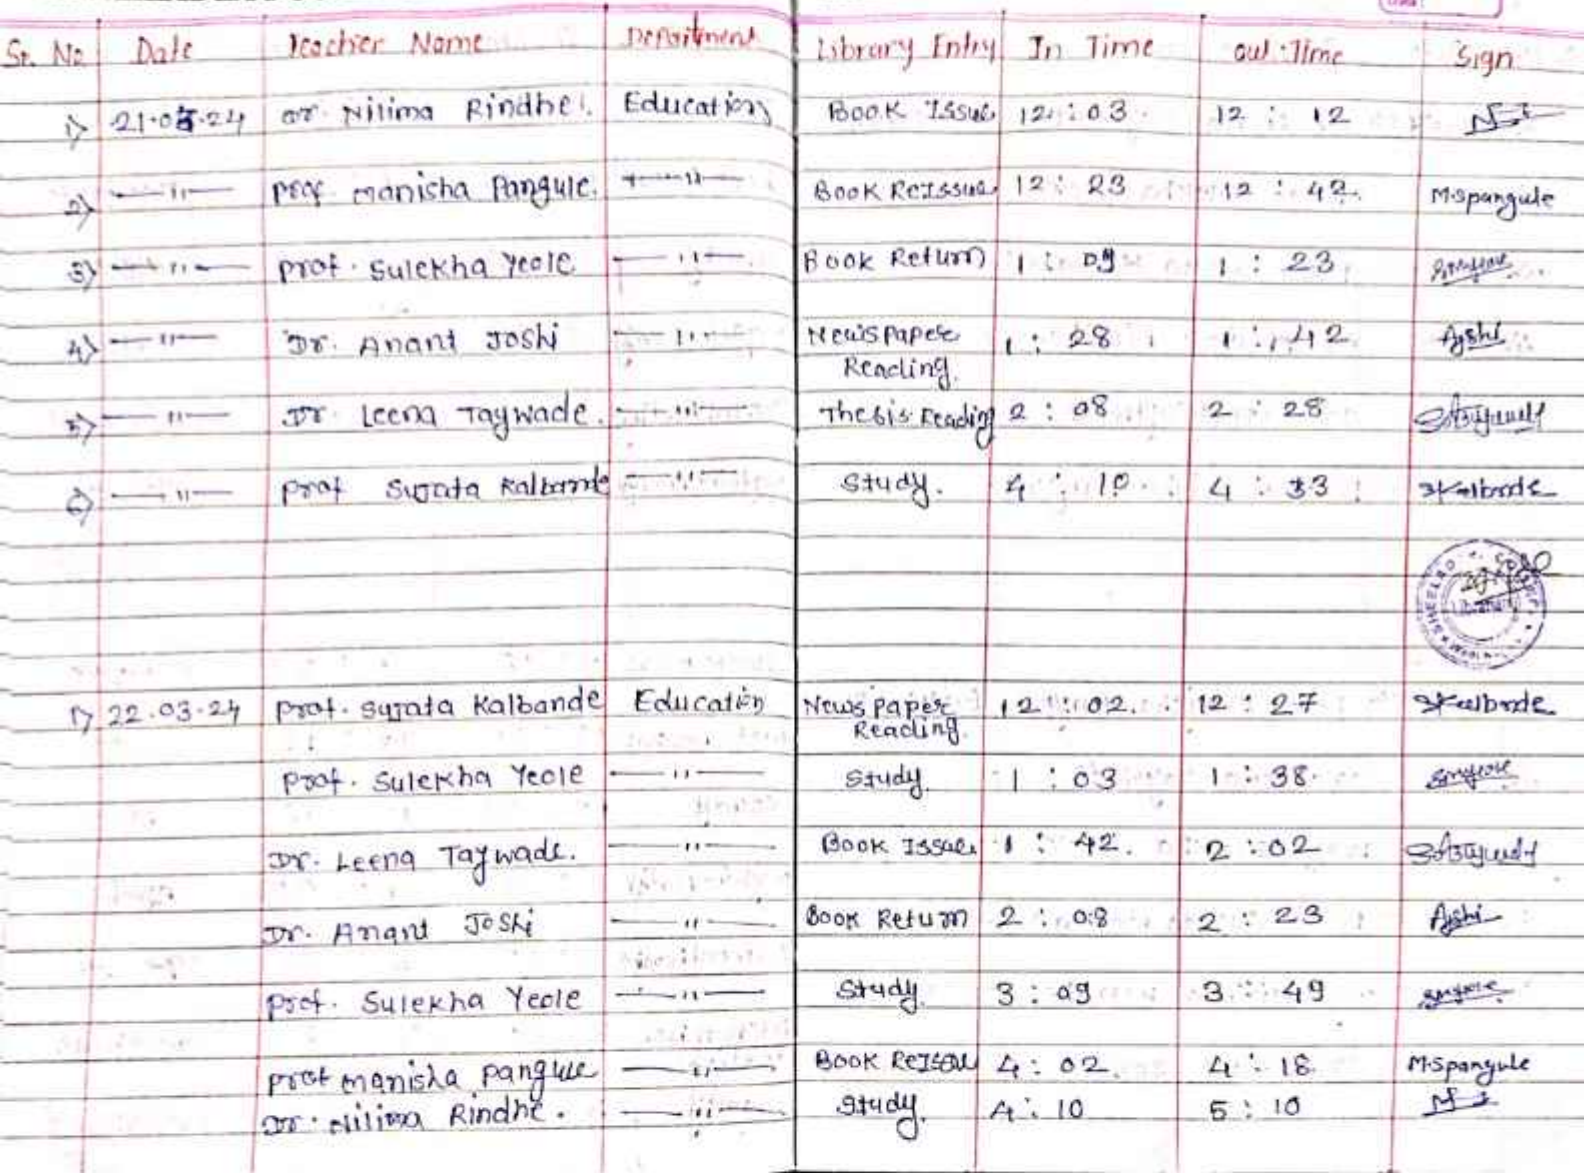 Sr. No Date Teacher Name Department Library Entry In Time out Time Sign
1) 21.03.24 Dr. Nilima Rindhe. Education Book Issue 12:03 12:12
2) —"— Prof. Manisha Pangule. —"— Book ReIssue 12:23 12:42 M.S pangule
3) —"— Prof. Sulekha Yeole —"— Book Return 1:09 1:23
4) —"— Dr. Anant Joshi —"— Newspaper 1:28 1:42 Ajshi
Reading.
5) —"— Dr. Leena Taywade. —"— Thesis Reading 2:08 2:28
6) —"— Prof Sujata Kalbande —"— Study. 4:10 4:33 Kalbnde
Librarian
1) 22.03.24 Prof. Sujata Kalbande Education Newspaper 12:02 12:27 Kalbnde
Reading.
Prof. Sulekha Yeole —"— Study. 1:03 1:38
Dr. Leena Taywade. —"— Book Issue 1:42 2:02
Dr. Anant Joshi —"— Book Return 2:08 2:23 Ajshi
Prof. Sulekha Yeole —"— Study. 3:09 3:49
Prof Manisha Pangule —"— Book ReIssue 4:02 4:18 M.S pangule
Dr. Nilima Rindhe. —"— Study. 4:10 5:10